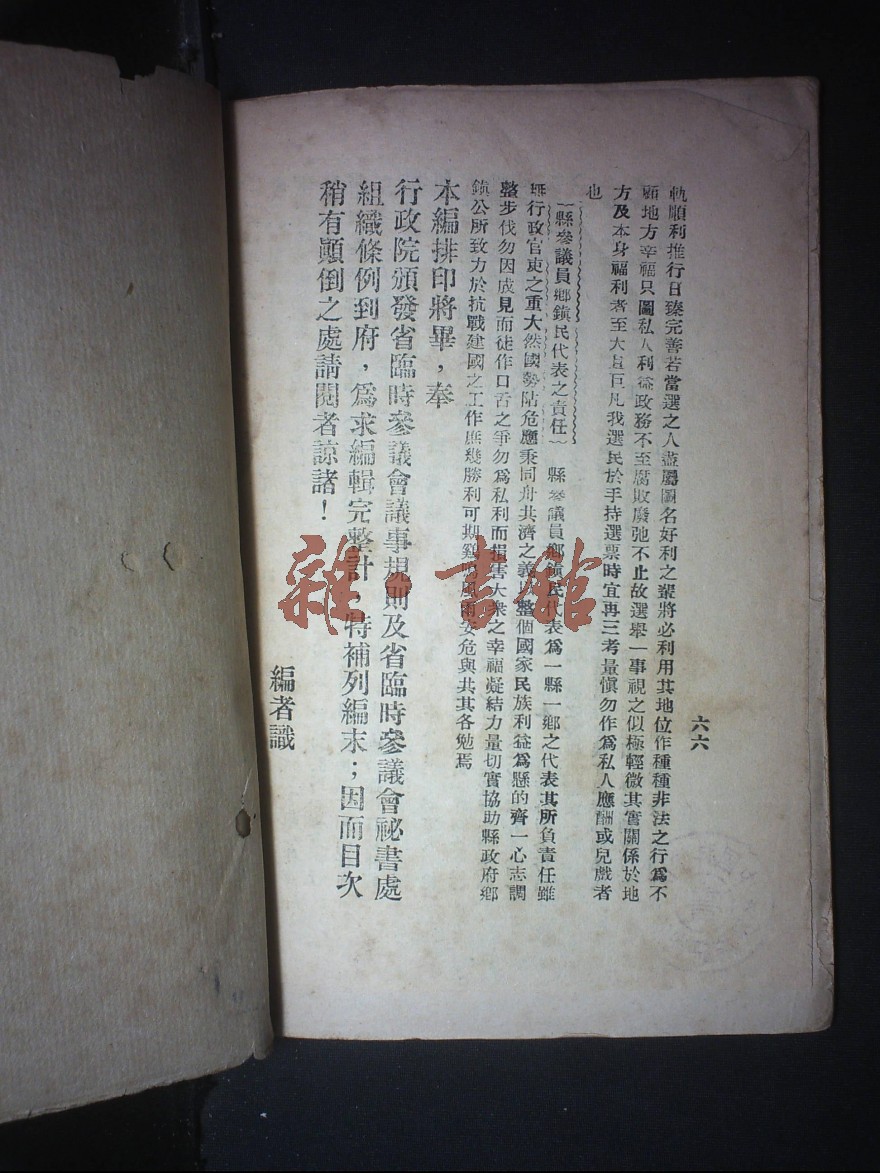 六六
軌順利推行日臻完善若當選之人盡屬圖名好利之輩將必利用其地位作種種非法之行爲不
顧地方幸福只圖私人利益政務不至腐敗廢弛不止故選舉一事視之似極輕微其實關係於地
方及本身福利者至大且巨凡我選民於手持選票時宜再三考量愼勿作爲私人應酬或兒戲者
也
縣參議員鄉鎭民代表之責任 縣參議員鄉鎭民代表爲一縣一鄉之代表其所負責任雖
非行政官吏之重大然國勢阽危應秉同舟共濟之義以整個國家民族利益爲懸的齊一心志調
整步伐勿因成見而徒作口舌之爭勿爲私利而損害大衆之幸福凝結力量切實協助縣政府鄉
鎭公所致力於抗戰建國之工作庶幾勝利可期鷄鳴風雨安危與共其各勉焉
本編排印將畢，奉
行政院頒發省臨時參議會議事規則及省臨時參議會祕書處
組織條例到府，爲求編輯完整計，特補列編末；因而目次
稍有顚倒之處請閱者諒諸！
編者識
雜·書館